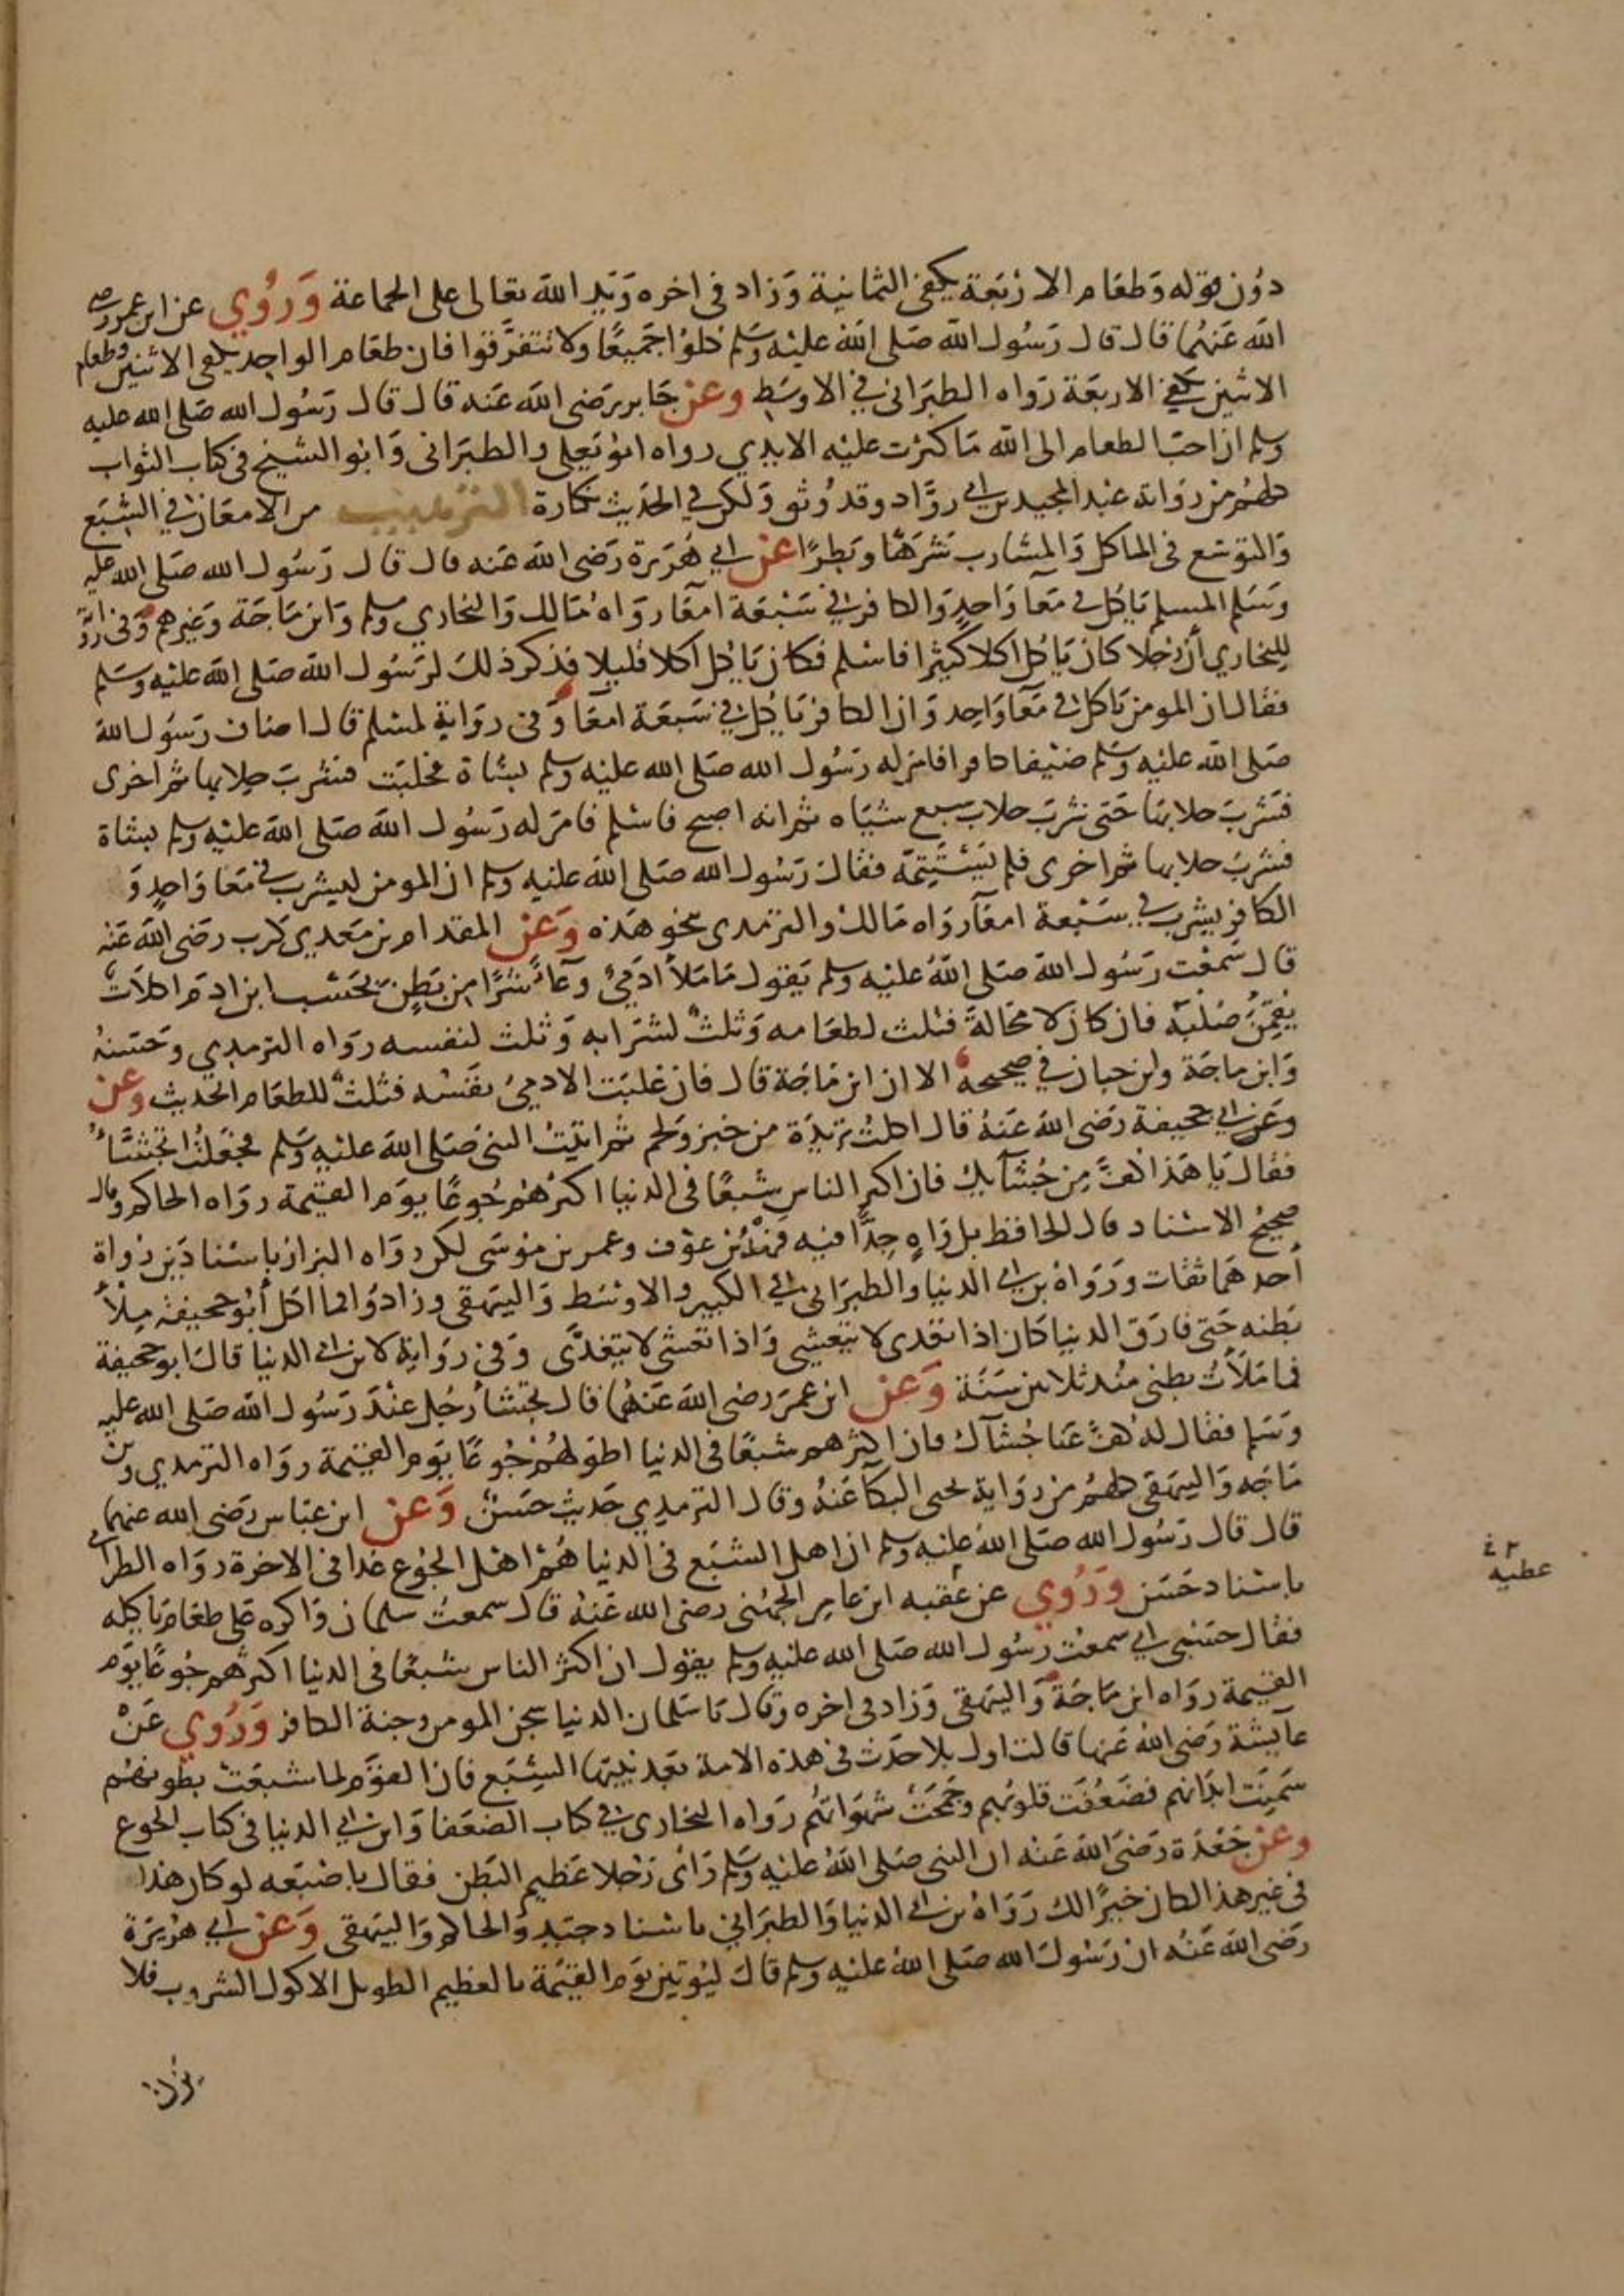 دون قوله وطعام الاربعة يكفي الثمانية وزاد في اخره ويد الله تعالى على الجماعة وروي عن ابن عمر رضي
الله عنهما قال قال رسول الله صلى الله عليه وسلم كلوا جميعا ولا تتفرقوا فان طعام الواحد يكفي الاثنين وطعام
الاثنين يكفي الاربعة رواه الطبراني في الاوسط وعن جابر رضي الله عنه قال قال رسول الله صلى الله عليه
وسلم ان احب الطعام الى الله ما كثرت عليه الايدي رواه ابو يعلى والطبراني وابو الشيخ في كتاب الثواب
كلهم من رواية عبد المجيد بن ابي رواد وقد وثق ولكن في الحديث نكارة الترهيب من الامعان في الشبع
والتوسع في الماكل والمشارب شرها وبطرا عن ابي هريرة رضي الله عنه قال قال رسول الله صلى الله عليه
وسلم المسلم ياكل في معا واحد والكافر في سبعة امعا رواه مالك والبخاري ومسلم وابن ماجة وغيرهم وفي رواية
للبخاري ان رجلا كان ياكل اكلا كثيرا فاسلم فكان ياكل اكلا قليلا فذكر ذلك لرسول الله صلى الله عليه وسلم
فقال ان المومن ياكل في معا واحد وان الكافر ياكل في سبعة امعا وفي رواية لمسلم قال اضاف رسول الله
صلى الله عليه وسلم ضيفا كافرا فامر له رسول الله صلى الله عليه وسلم بشاة فحلبت فشرب حلابها ثم اخرى
فشرب حلابها حتى شرب حلاب سبع شياه ثم انه اصبح فاسلم فامر له رسول الله صلى الله عليه وسلم بشاة
فشرب حلابها ثم اخرى فلم يستتمه فقال رسول الله صلى الله عليه وسلم ان المومن ليشرب في معا واحد و
الكافر يشرب في سبعة امعآ رواه مالك والترمدى بنحو هذه وعن المقدام بن معدي كرب رضي الله عنه
قال سمعت رسول الله صلى الله عليه وسلم يقول ما ملأ ادمي وعآء شرا من بطن بحسب ابن ادم اكلات
يقمن صلبه فان كان لا محالة فثلث لطعامه وثلث لشرابه وثلث لنفسه رواه الترمدي وحسنه
وابن ماجة وابن حبان في صحيحه الا ان ابن ماجة قال فان غلبت الادمي نفسه فثلث للطعام الحديث وعن
وعن ابي جحيفة رضي الله عنه قال اكلت ثريدة من خبز ولحم ثم اتيت النبي صلى الله عليه وسلم فجعلت اتجشأ
فقال يا هذا كف من جشآيك فان اكثر الناس شبعا في الدنيا اكثرهم جوعا يوم القيمة رواه الحاكم وقال
صحيح الاسناد قال الحافظ بل واه جدا فيه فهد بن عوف وعمر بن موسى لكن رواه البزار باسنادين رواة
احدهما ثقات ورواه بن ابي الدنيا والطبراني في الكبير والاوسط والبيهقي وزادوا فما اكل ابو جحيفة ملأ
بطنه حتى فارق الدنيا كان اذا تغدى لا يتعشى واذا تعشى لا يتغدى وفي رواية لابن ابي الدنيا قال ابو جحيفة
فما ملأت بطني منذ ثلاثين سنة وعن ابن عمر رضي الله عنهما قال تجشأ رجل عند رسول الله صلى الله عليه
وسلم فقال له كف عنا جشآك فان اكثرهم شبعا في الدنيا اطولهم جوعا يوم القيمة رواه الترمدي وبن
ماجه والبيهقي كلهم من رواية يحيى البكآ عنه وقال الترمدي حديث حسن وعن ابن عباس رضي الله عنهما
قال قال رسول الله صلى الله عليه وسلم ان اهل الشبع في الدنيا هم اهل الجوع غدا في الاخرة رواه الطبراني
باسناد حسن وروي عن عقبه ابن عامر الجهني رضي الله عنه قال سمعت سلمان واكره على طعام ياكله
فقال حسبي اني سمعت رسول الله صلى الله عليه وسلم يقول ان اكثر الناس شبعا في الدنيا اكثرهم جوعا يوم
القيمة رواه ابن ماجة والبيهقي وزاد في اخره وقال يا سلمان الدنيا سجن المومن وجنة الكافر وروي عن
عآيشة رضي الله عنها قالت اول بلا حدث في هذه الامة بعد نبيها الشبع فان القوم لما شبعت بطونهم
سمنت ابدانهم فضعفت قلوبهم وجمحت شهواتهم رواه البخاري في كتاب الضعفا وابن ابي الدنيا في كتاب الجوع
وعن جعدة رضي الله عنه ان النبي صلى الله عليه وسلم رأى رجلا عظيم البطن فقال باضبعه لو كان هذا
في غير هذا لكان خيرا لك رواه بن ابي الدنيا والطبراني باسناد جيد والحاكم والبيهقي وعن ابي هريرة
رضي الله عنه ان رسول الله صلى الله عليه وسلم قال ليوتين يوم القيمة بالعظيم الطويل الاكول الشروب فلا
يزن
عطيه